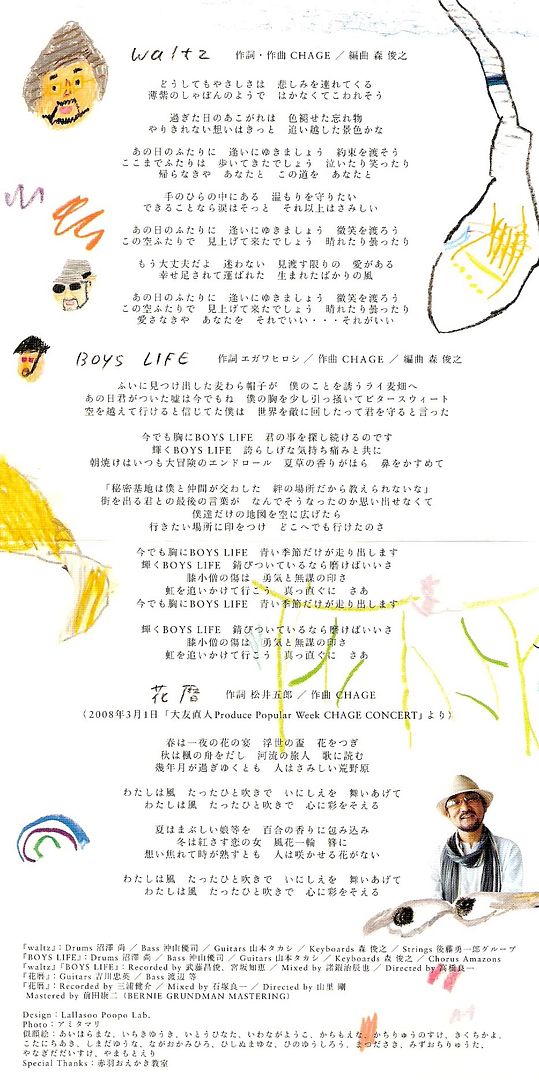 waltz 作詞・作曲 CHAGE ／ 編曲 森 俊之
どうしてもやさしさは 悲しみを連れてくる
薄紫のしゃぼんのようで はかなくてこわれそう
過ぎた日のあこがれは 色褪せた忘れ物
やりきれない想いはきっと 追い越した景色かな
あの日のふたりに 逢いにゆきましょう 約束を渡そう
ここまでふたりは 歩いてきたでしょう 泣いたり笑ったり
帰らなきゃ あなたと この道を あなたと
手のひらの中にある 温もりを守りたい
できることなら涙はそっと それ以上はさみしい
あの日のふたりに 逢いにゆきましょう 微笑を渡ろう
この空ふたりで 見上げて来たでしょう 晴れたり曇ったり
もう大丈夫だよ 迷わない 見渡す限りの 愛がある
幸せ足されて運ばれた 生まれたばかりの風
あの日のふたりに 逢いにゆきましょう 微笑を渡ろう
この空ふたりで 見上げて来たでしょう 晴れたり曇ったり
愛さなきゃ あなたを それでいい・・・それがいい
BOYS LIFE 作詞 エガワヒロシ ／ 作曲 CHAGE ／ 編曲 森 俊之
ふいに見つけ出した麦わら帽子が 僕のことを誘うライ麦畑へ
あの日君がついた嘘は今でもね 僕の胸を少し引っ掻いてビタースウィート
空を越えて行けると信じてた僕は 世界を敵に回したって君を守ると言った
今でも胸にBOYS LIFE 君の事を探し続けるのです
輝くBOYS LIFE 誇らしげな気持ち痛みと共に
朝焼けはいつも大冒険のエンドロール 夏草の香りがほら 鼻をかすめて
「秘密基地は僕と仲間が交わした 絆の場所だから教えられないな」
街を出る君との最後の言葉が なんでそうなったのか思い出せなくて
僕達だけの地図を空に広げたら
行きたい場所に印をつけ どこへでも行けたのさ
今でも胸にBOYS LIFE 青い季節だけが走り出します
輝くBOYS LIFE 錆びついているなら磨けばいいさ
膝小僧の傷は 勇気と無謀の印さ
虹を追いかけて行こう 真っ直ぐに さあ
今でも胸にBOYS LIFE 青い季節だけが走り出します
輝くBOYS LIFE 錆びついているなら磨けばいいさ
膝小僧の傷は 勇気と無謀の印さ
虹を追いかけて行こう 真っ直ぐに さあ
花暦 作詞 松井五郎 ／ 作曲 CHAGE
（2008年3月1日「大友直人Produce Popular Week CHAGE CONCERT」より）
春は一夜の花の宴 浮世の盃 花をつぎ
秋は楓の舟をだし 河流の旅人 歌に読む
幾年月が過ぎゆくとも 人はさみしい荒野原
わたしは風 たったひと吹きで いにしえを 舞いあげて
わたしは風 たったひと吹きで 心に彩をそえる
夏はまぶしい娘等を 百合の香りに包み込み
冬は紅さす恋の女 風花一輪 簪に
想い焦れて時が熟すとも 人は咲かせる花がない
わたしは風 たったひと吹きで いにしえを 舞いあげて
わたしは風 たったひと吹きで 心に彩をそえる
『waltz』：Drums 沼澤 尚 ／ Bass 沖山優司 ／ Guitars 山本タカシ ／ Keyboards 森 俊之 ／ Strings 後藤勇一郎グループ
『BOYS LIFE』：Drums 沼澤 尚 ／ Bass 沖山優司 ／ Guitars 山本タカシ ／ Keyboards 森 俊之 ／ Chorus Amazons
『waltz』『BOYS LIFE』：Recorded by 武藤昌俊、宮坂知恵 ／ Mixed by 諸鍜治辰也 ／ Directed by 高橋良一
『花暦』：Guitars 吉川忠英 ／ Bass 渡辺 等
『花暦』：Recorded by 三浦健介 ／ Mixed by 石塚良一 ／ Directed by 山里 剛
Mastered by 前田康二（BERNIE GRUNDMAN MASTERING）
Design：Lallasoo Poopo Lab.
Photo：アミタマリ
似顔絵：あいはらまな、いちきゆうき、いとうひなた、いわながようこ、からもえな、かちりゅうのすけ、きくちかよ、
こたにちあき、しまだゆうな、ながおかみひろ、ひしぬまゆな、ひのゆうしろう、まつださき、みずおちりゅうた、
やなぎだだいすけ、やまもとえり
Special Thanks：赤羽おえかき教室